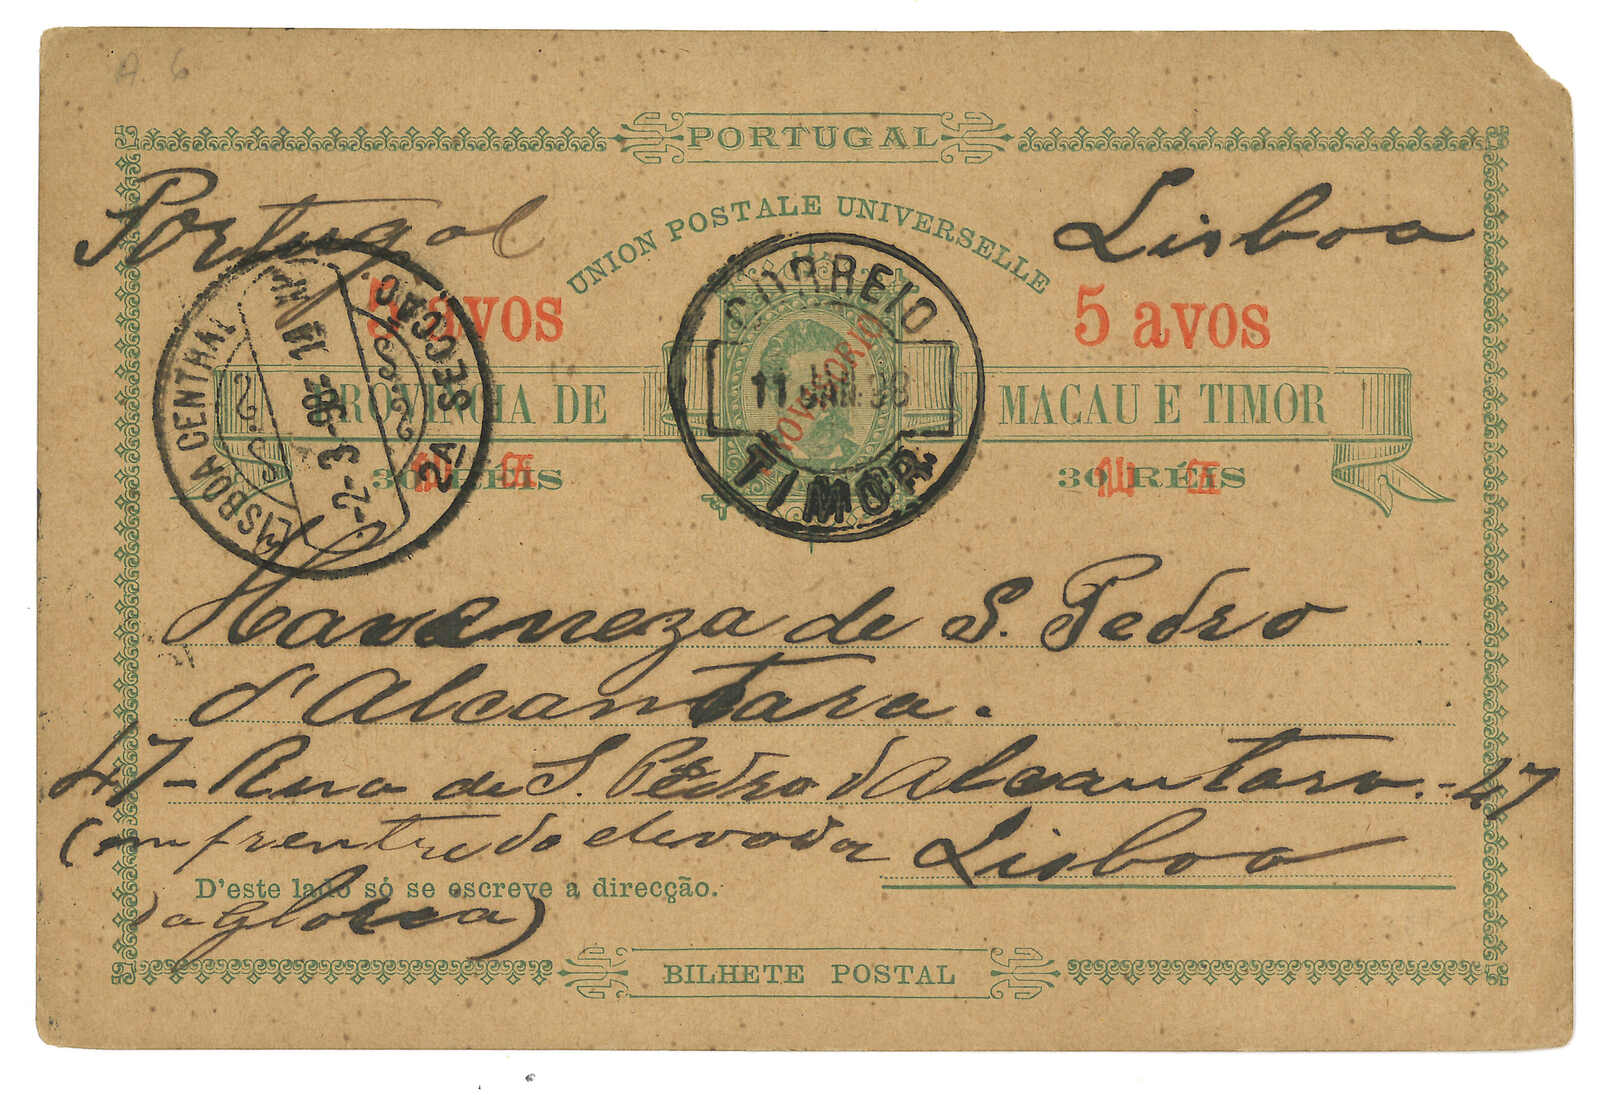 A. 6
PORTUGAL
Portugal
UNION POSTALE UNIVERSELLE
Lisboa
5 avos
5 avos
PROVINCIA DE
MACAU E TIMOR
30 RÉIS
30 RÉIS
PROVISORIO
CORREIO
11 JAN. 98
TIMOR
LISBOA CENTRAL
2ª SECCÃO.
-2-3-98
Havaneza de S. Pedro
d'Alcantara.
47 - Rua de S. Pedro d'Alcantara. - 47
(em frente do elevador
Lisboa
D'este lado só se escreve a direcção.
da Gloria)
BILHETE POSTAL